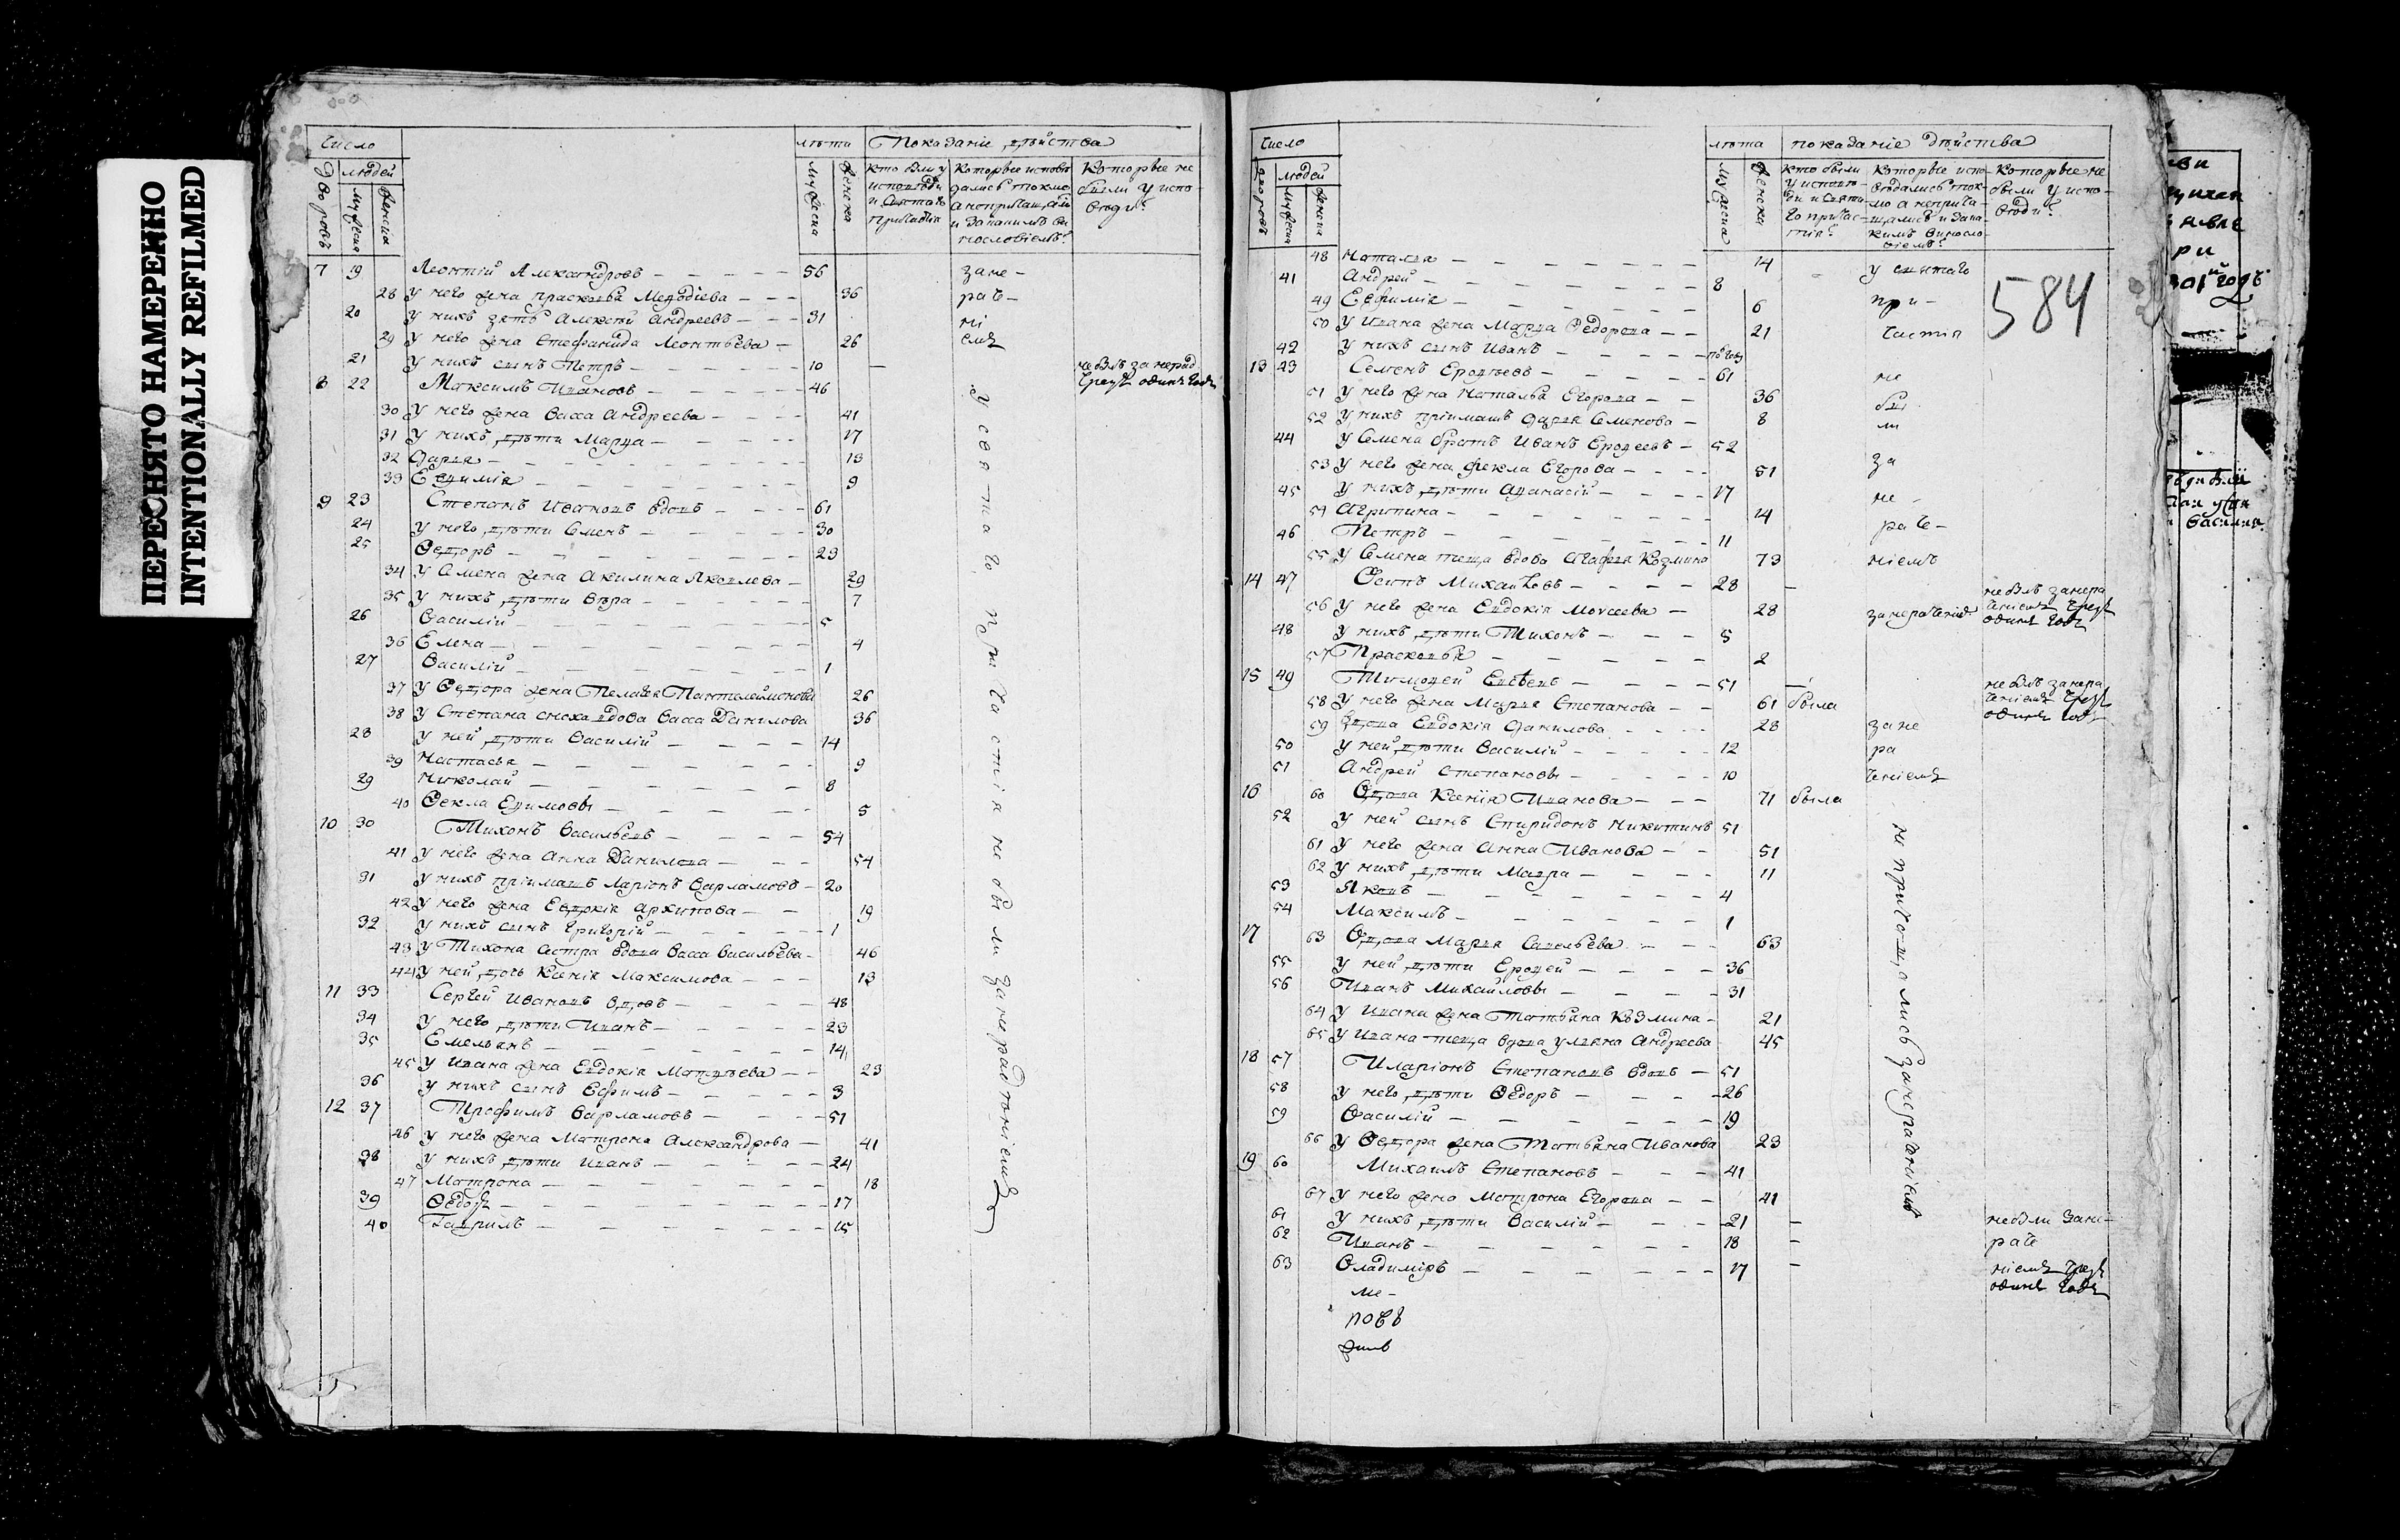 ПЕРЕСНЯТО НАМЕРЕННО
INTENTIONALLY REFILMED
Число
лѣта
Показаніе дѣйства
Дворовъ
людей
мужеска
женска
мужеска
женска
кто были у исповѣди и святаго причастія
Которые исповѣдались токмо а непричащались и за какимъ винословіемъ?
Которые не были у исповѣди?
7 19 Леонтій Александровъ 56 зане-
28 У него жена Прасковья Меѳодіева 36 раче-
20 У нихъ зять Алексѣй Андреевъ 31 ні
29 У него жена Стефанида Леонтьева 26 емъ
21 У нихъ сынъ Петръ 10 — не былъ за нерад
8 22 Максимъ Ивановъ 46 чрезъ одинъ годъ
30 У него жена Васса Андреева 41
31 У нихъ дѣти Марѳа 17
32 Дарья 13
33 Еѳимія 9
9 23 Степанъ Ивановъ вдовъ 61
24 У него дѣти Семенъ 30
25 Ѳедоръ 23
34 У Семена жена Акилина Яковлева 29
35 У нихъ дѣти Вѣра 7
26 Василій 5
36 Елена 4
27 Василій 1
37 У Ѳедора жена Пелагея Пантелеймонова 26
38 У Степана сноха вдова Васса Данилова 36
28 У ней дѣти Василій 14
39 Настасья 9
29 Николай 8
40 Ѳекла Еѳимовы 5
10 30 Тихонъ Васильевъ 54
41 У него жена Анна Данилова 54
31 У нихъ пріимашъ Ларіонъ Варламовъ 20
42 У него жена Евдокія Архипова 19
32 У нихъ сынъ Григорій 1
43 У Тихона сестра вдова Васса Васильева 46
44 У ней дочь Ксенія Максимова 13
11 33 Сергѣй Ивановъ вдовъ 48
34 У него дѣти Иванъ 23
35 Емельянъ 14
45 У Ивана жена Евдокія Матвѣева 23
36 У нихъ сынъ Ефимъ 3
12 37 Трофимъ Варламовъ 51
46 У него жена Матрона Александрова 41
38 У нихъ дѣти Иванъ 24
47 Матрона 18
39 Ѳедоръ 17
40 Гаврилъ 15
У святаго причастія не были за нерадѣніемъ
Число
лѣта
показаніе дѣйства
дворовъ
людей
мужеска
женска
мужеска
женски
кто были у исповѣди и святаго причастія?
Которые исповѣдались токмо а непричащались и за какимъ винословіемъ?
Которые не были у исповѣди?
584
48 Наталья 14 у святаго
41 Андрей 8
49 Еѳимія 6 при-
50 У Ивана жена Марѳа Ѳедорова 21 частія
42 У нихъ сынъ Иванъ полгода
13 43 Семенъ Ероѳѣевъ 61 не
51 У него жена Наталья Егорова 36 бы
52 У нихъ пріимашъ Дарья Семенова 8 ли
44 У Семена братъ Иванъ Ероѳеевъ 52
53 У него жена Фекла Егорова 51 за
45 У нихъ дѣти Аѳанасій 17
54 Агрипина 14 не-
46 Петръ 11 раче-
55 У Семена теща вдова Агафья Козмина 73 ніемъ
14 47 Осипъ Михайловъ 28 — не былъ занера
56 У него жена Евдокія Моисеева 28 занераченіе ченіемъ чрезъ
48 У нихъ дѣти Тихонъ 5 одинъ годъ
57 Прасковья 2
15 49 Тимоѳей Евсѣевъ 51 — не былъ занера
58 У него жена Марья Степанова 61 была ченіемъ чрезъ
59 Вдова Евдокія Данилова 28 зане одинъ годъ
50 У ней дѣти Василій 12 ра
51 Андрей Степановы 10 ченіемъ
16 60 Вдова Ксенія Иванова 71 была
52 У ней сынъ Спиридонъ Никитинъ 51
61 У него жена Анна Иванова 51
62 У нихъ дѣти Мавра 11
53 Яковъ 4
54 Максимъ 1
17 63 Вдова Марья Савельева 63
55 У ней дѣти Ероѳей 36
56 Иванъ Михайловы 31
64 У Ивана жена Татьяна Козмина 21
65 У Ивана теща вдова Ульяна Андреева 45
18 57 Иларіонъ Степановъ вдовъ 51
58 У него дѣти Ѳедоръ 26
59 Василій 19
66 У Ѳедора жена Татьяна Иванова 23
19 60 Михаилъ Степановъ 41
67 У него жена Матрона Егорова 41
61 У нихъ дѣти Василій 21 — не были зане-
62 Иванъ 18 — раче
63 Владиміръ 17 — ніемъ чрезъ
одинъ годъ
не причащались занераченіемъ